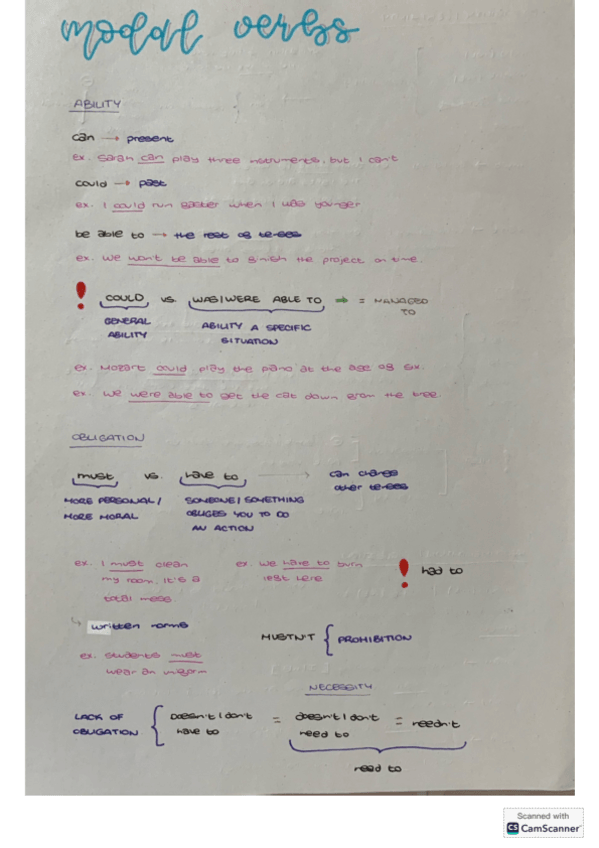 modal verbs
ABILITY
can → present
ex. Sarah can play three instruments, but I can't
could → past
ex. I could run faster when I was younger
be able to → the rest of tenses
ex. We won't be able to finish the project on time.
! COULD vs. WAS/WERE ABLE TO → = MANAGED TO
GENERAL ABILITY
ABILITY A SPECIFIC SITUATION
ex. Mozart could play the piano at the age of six.
ex. We were able to get the cat down from the tree.
OBLIGATION
must vs. have to → can change other tenses
MORE PERSONAL / MORE MORAL
SOMEONE / SOMETHING OBLIGES YOU TO DO AN ACTION
ex. I must clean my room. It's a total mess.
ex. We have to turn left here
! had to
↳ written norms
ex. Students must wear an uniform
MUSTN'T { PROHIBITION
NECESSITY
LACK OF OBLIGATION { Doesn't / don't have to = doesn't / don't need to = needn't
need to
Scanned with
CS CamScanner